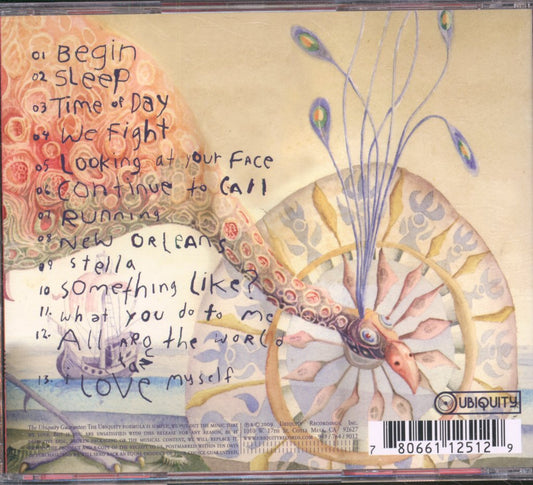 01 Begin
02 Sleep
03 Time of Day
04 We Fight
05 Looking at your Face
06 Continue to Call
07 Running
08 New Orleans
09 Stella
10. Something Like?
11. What you do to me
12. All aro the world
13. I Love Myself
The Ubiquity Guarantee: THE UBIQUITY FORMULA IS SIMPLE, WE PUT OUT THE MUSIC THAT
WE LOVE. BUT IF YOU ARE UNSATISFIED WITH THIS RELEASE FOR ANY REASON, BE IT
THE MUSICAL CONTENT, WE WILL REPLACE IT.
POSTMARKED WITHIN TEN DAYS
CHOICE GUARANTEED.
℗&© 2009 Ubiquity Recordings, Inc.
1010 W. 17th St. Costa Mesa, CA 92627
WWW.UBIQUITYRECORDS.COM 949 / 764 / 9012
UBIQUITY
7 80661 12512 9